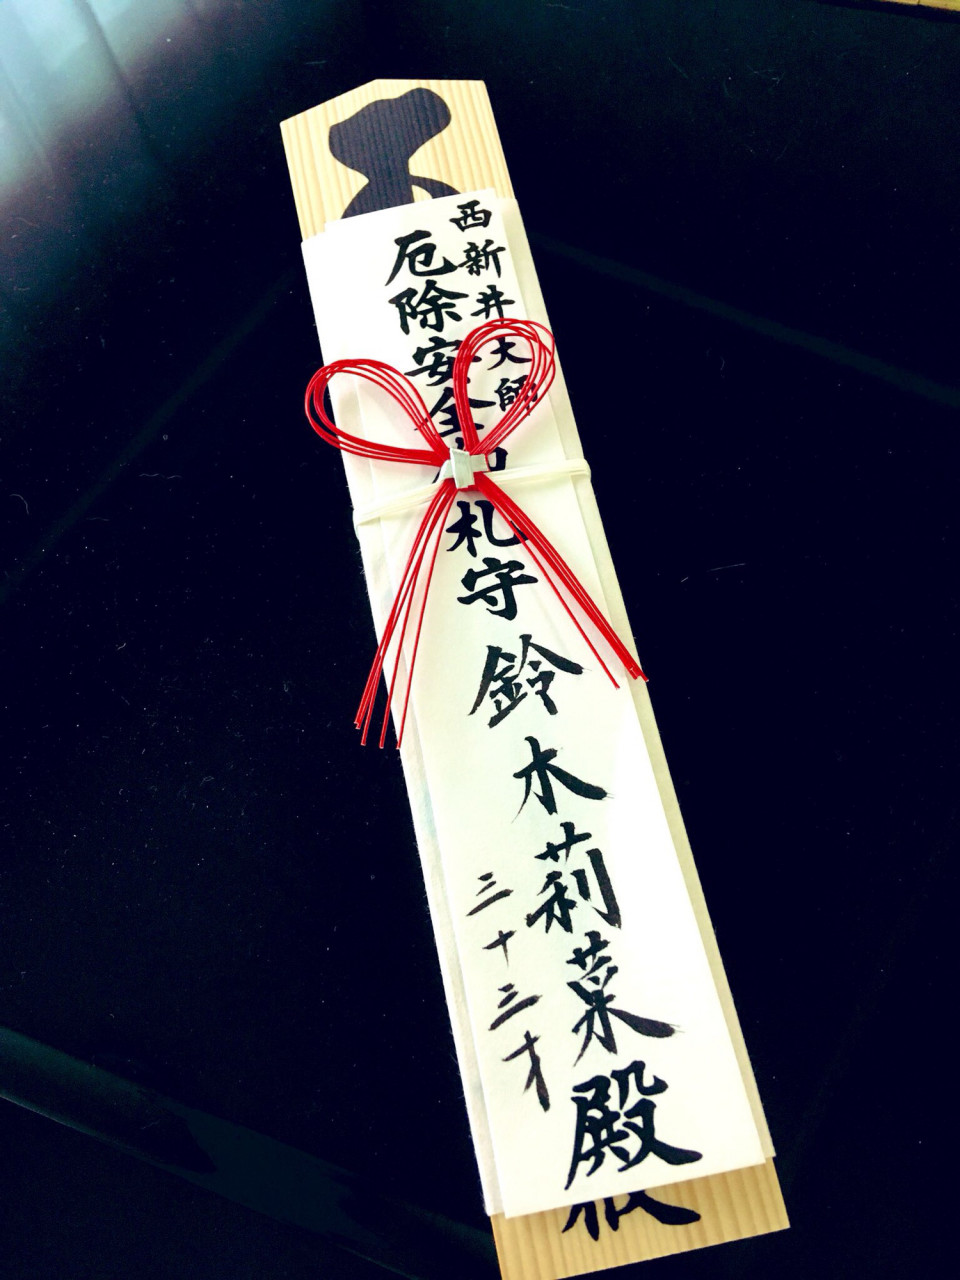 西新井大師
厄除安全加札守 鈴木莉菜殿
三十三才